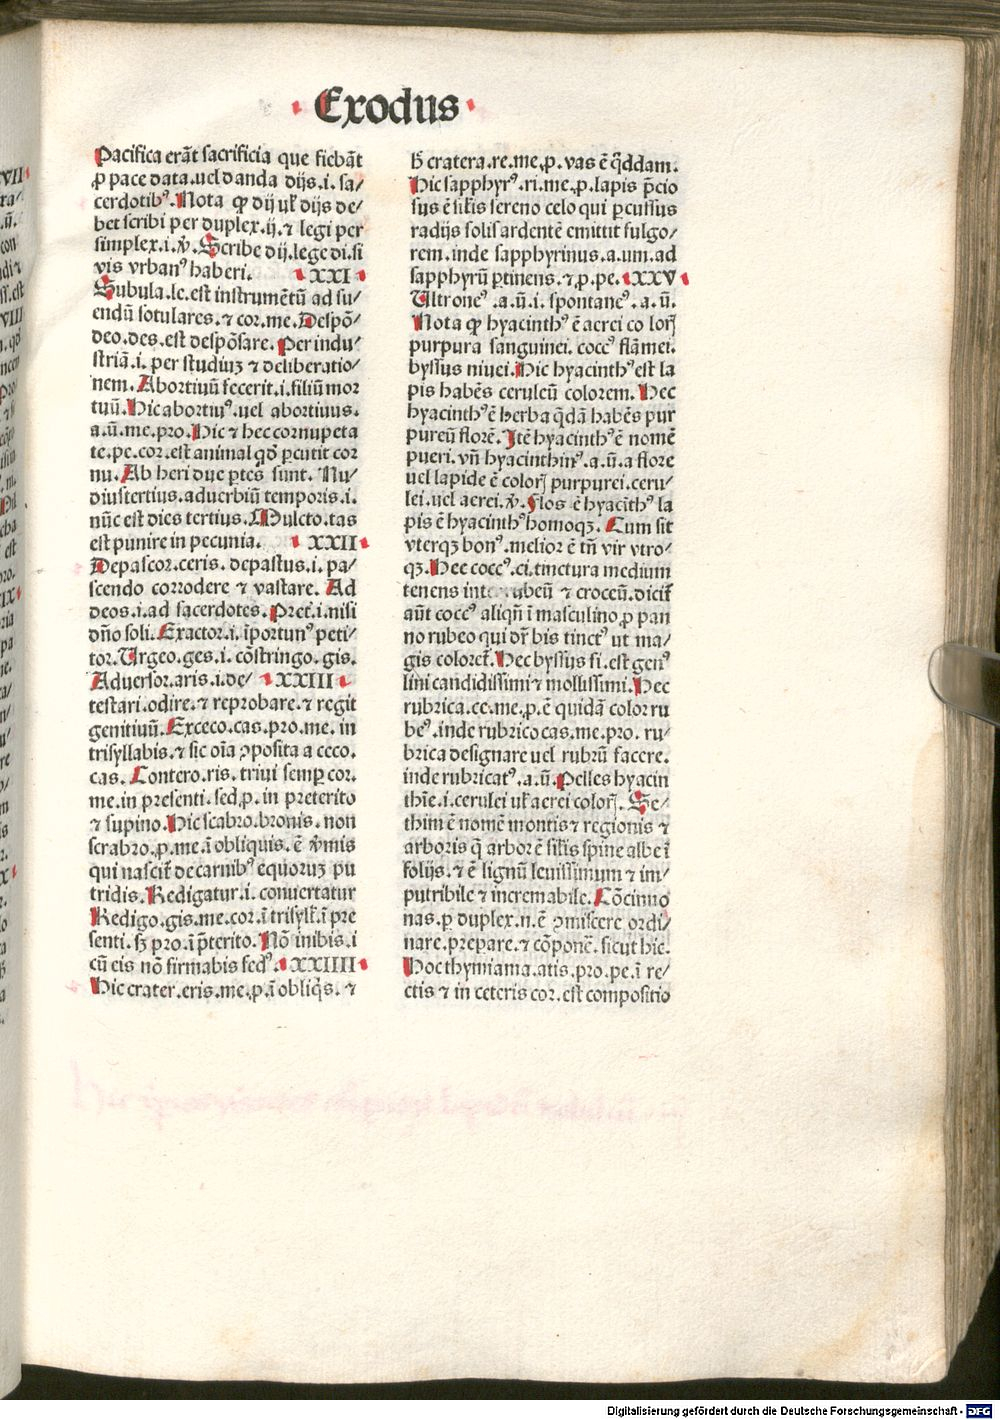 Exodus
Pacifica erāt sacrificia que fiebāt
ꝓ pace data.uel danda dijs.i.sa/
cerdotibꝰ.Nota ꝙ dij ul̛ dijs de/
bet scribi per duplex.ij.⁊ legi per
simplex.i.v̛.Scribe dij.lege di.si
vis vrbanꝰ haberi. XXI
Subula.le.est instrumētū ad su/
endū sotulares.⁊ cor.me.Despō/
deo.des.est despōsare.Per indu/
striā.i.per studiuꝫ ⁊ deliberatio/
nem.Abortiuū fecerit.i.filiū mor
tuū.Hic abortiuꝰ.uel abortiuus.
a.ū.me.pro.Hic ⁊ hec cornupeta
te.pe.cor.est animal qđ ꝑcutit cor
nu.Ab heri due ꝑtes sunt. Nu/
diustertius.aduerbiū temporis.i.
nūc est dies tertius.Mulcto.tas
est punire in pecunia. XXII
Depascor.ceris.depastus.i.pa/
scendo corrodere ⁊ vastare. Ad
deos.i.ad sacerdotes.Pret̛.i.nisi
dn̄o soli.Exactor.i.īportunꝰ peti/
tor.Urgeo.ges.i.cōstringo.gis.
Aduersor.aris.i.de/ XXIII
testari.odire.⁊ reprobare.⁊ regit
genitiuū.Exceco.cas.pro.me.in
trisyllabis.⁊ sic oīa ꝯposita a ceco.
cas. Contero.ris.triui semꝑ cor.
me.in presenti.sed.p.in preterito
⁊ supino.Hic scabro.bronis.non
scrabro.p.me.ī obliquis.ē v̛mis
qui nascit̛ de carnibꝰ equoruꝫ pu
tridis.Redigatur.i.conuertatur
Redigo.gis.me.cor.ī trisyll̛.ī pre
senti.sꝫ pro.ī p̄terito.Nō inibis.i
cū eis nō firmabis fedꝰ. XXIIII
Hic crater.eris.me.p.ī obliq̄s.⁊
h̄ cratera.re.me.p.vas ē q̄ddam.
Hic sapphyrꝰ.ri.me.p.lapis p̄cio
sus ē sil̛is sereno celo qui ꝑcussus
radijs solis ardentē emittit fulgo/
rem.inde sapphyrinus.a.um.ad
sapphyrū ꝑtinens.⁊.p.pe. XXV
Ultroneꝰ.a.ū.i.spontaneꝰ.a.ū.
Nota ꝙ hyacinthꝰ ē aerei colorꝭ
purpura sanguinei.coccꝰ flāmei.
byssus niuei.Hic hyacinthꝰ est la
pis habēs ceruleū colorem.Hec
hyacinthꝰ ē herba q̄dā habēs pur
pureū florē.Itē hyacinthꝰ ē nomē
pueri.vn̄ hyacinthinꝰ.a.ū.a flore
uel lapide ē colorꝭ purpurei.ceru/
lei.uel aerei.v̛.Flos ē hyacīthꝰ la
pis ē hyacinthꝰ homoqꝫ.Cum sit
vterqꝫ bonꝰ.melior ē tn̄ vir vtro/
qꝫ.Hec coccꝰ.ci.tinctura medium
tenens ubeū ⁊ croceū.dicit̛
aūt coccꝰ aliqn̄ ī masculino.ꝓ pan
no rubeo qui dr̄ bis tinctꝰ ut ma/
gis coloret̛.Hec byssus si.est genꝰ
lini candidissimi ⁊ mollissimi.Hec
rubrica.ce.me.p.ē quidā color ru
beꝰ.inde rubrico cas.me.pro. ru/
brica designare uel rubrū facere.
inde rubricatꝰ.a.ū.Pelles hyacin
thīe.i.cerulei ul̛ aerei colorꝭ. Se/
thim ē nomē montis ⁊ regionis ⁊
arboris q̄ arbor ē sil̛is spine albe ī
folijs.⁊ ē lignū leuissimum ⁊ im/
putribile ⁊ incremabile. Cōcinno
nas.ꝑ duplex.n.ē ꝯmiscere ordi/
nare.prepare.⁊ cōponē.sicut hic.
Hoc thymiama.atis.pro.pe.ī re/
ctis ⁊ in ceteris cor.est compositio
Digitalisierung gefördert durch die Deutsche Forschungsgemeinschaft - DFG